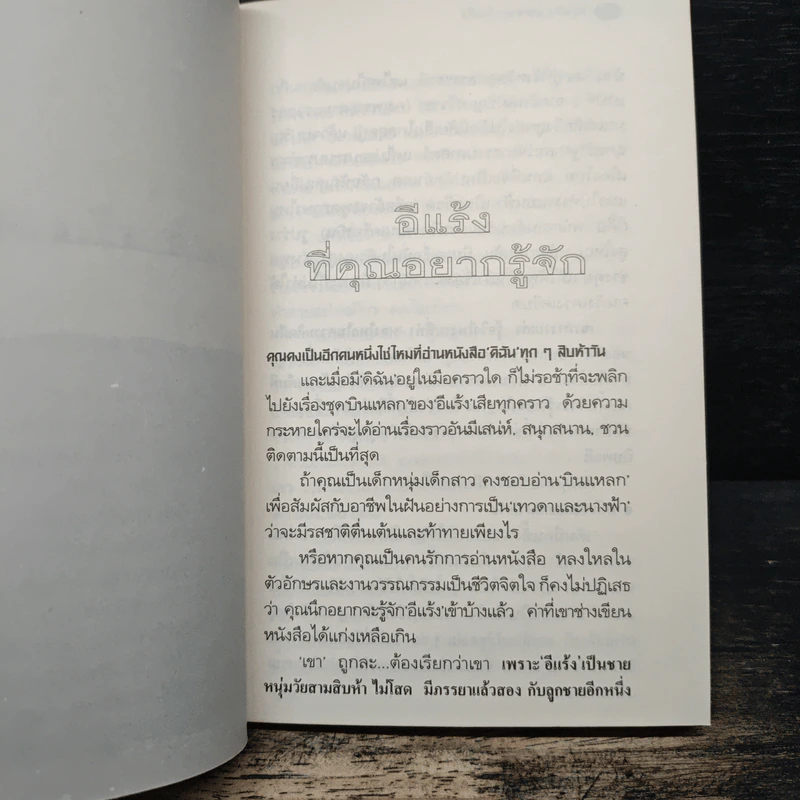 อีแร้ง
ที่คุณอยากรู้จัก
คุณคงเป็นอีกคนหนึ่งใช่ไหมที่อ่านหนังสือ'ดิฉัน'ทุก ๆ สิบห้าวัน
และเมื่อมี'ดิฉัน'อยู่ในมือคราวใด ก็ไม่รอช้าที่จะพลิก
ไปยังเรื่องชุด'บินแหลก'ของ'อีแร้ง'เสียทุกคราว ด้วยความ
กระหายใคร่จะได้อ่านเรื่องราวอันมีเสน่ห์, สนุกสนาน, ชวน
ติดตามนี้เป็นที่สุด
ถ้าคุณเป็นเด็กหนุ่มเด็กสาว คงชอบอ่าน'บินแหลก'
เพื่อสัมผัสกับอาชีพในฝันอย่างการเป็น'เทวดาและนางฟ้า'
ว่าจะมีรสชาติตื่นเต้นและท้าทายเพียงไร
หรือหากคุณเป็นคนรักการอ่านหนังสือ หลงใหลใน
ตัวอักษรและงานวรรณกรรมเป็นชีวิตจิตใจ ก็คงไม่ปฏิเสธ
ว่า คุณนึกอยากจะรู้จัก'อีแร้ง'เข้าบ้างแล้ว ค่าที่เขาช่างเขียน
หนังสือได้แก่งเหลือเกิน
'เขา' ถูกละ...ต้องเรียกว่าเขา เพราะ'อีแร้ง'เป็นชาย
หนุ่มวัยสามสิบห้า ไม่โสด มีภรรยาแล้วสอง กับลูกชายอีกหนึ่ง